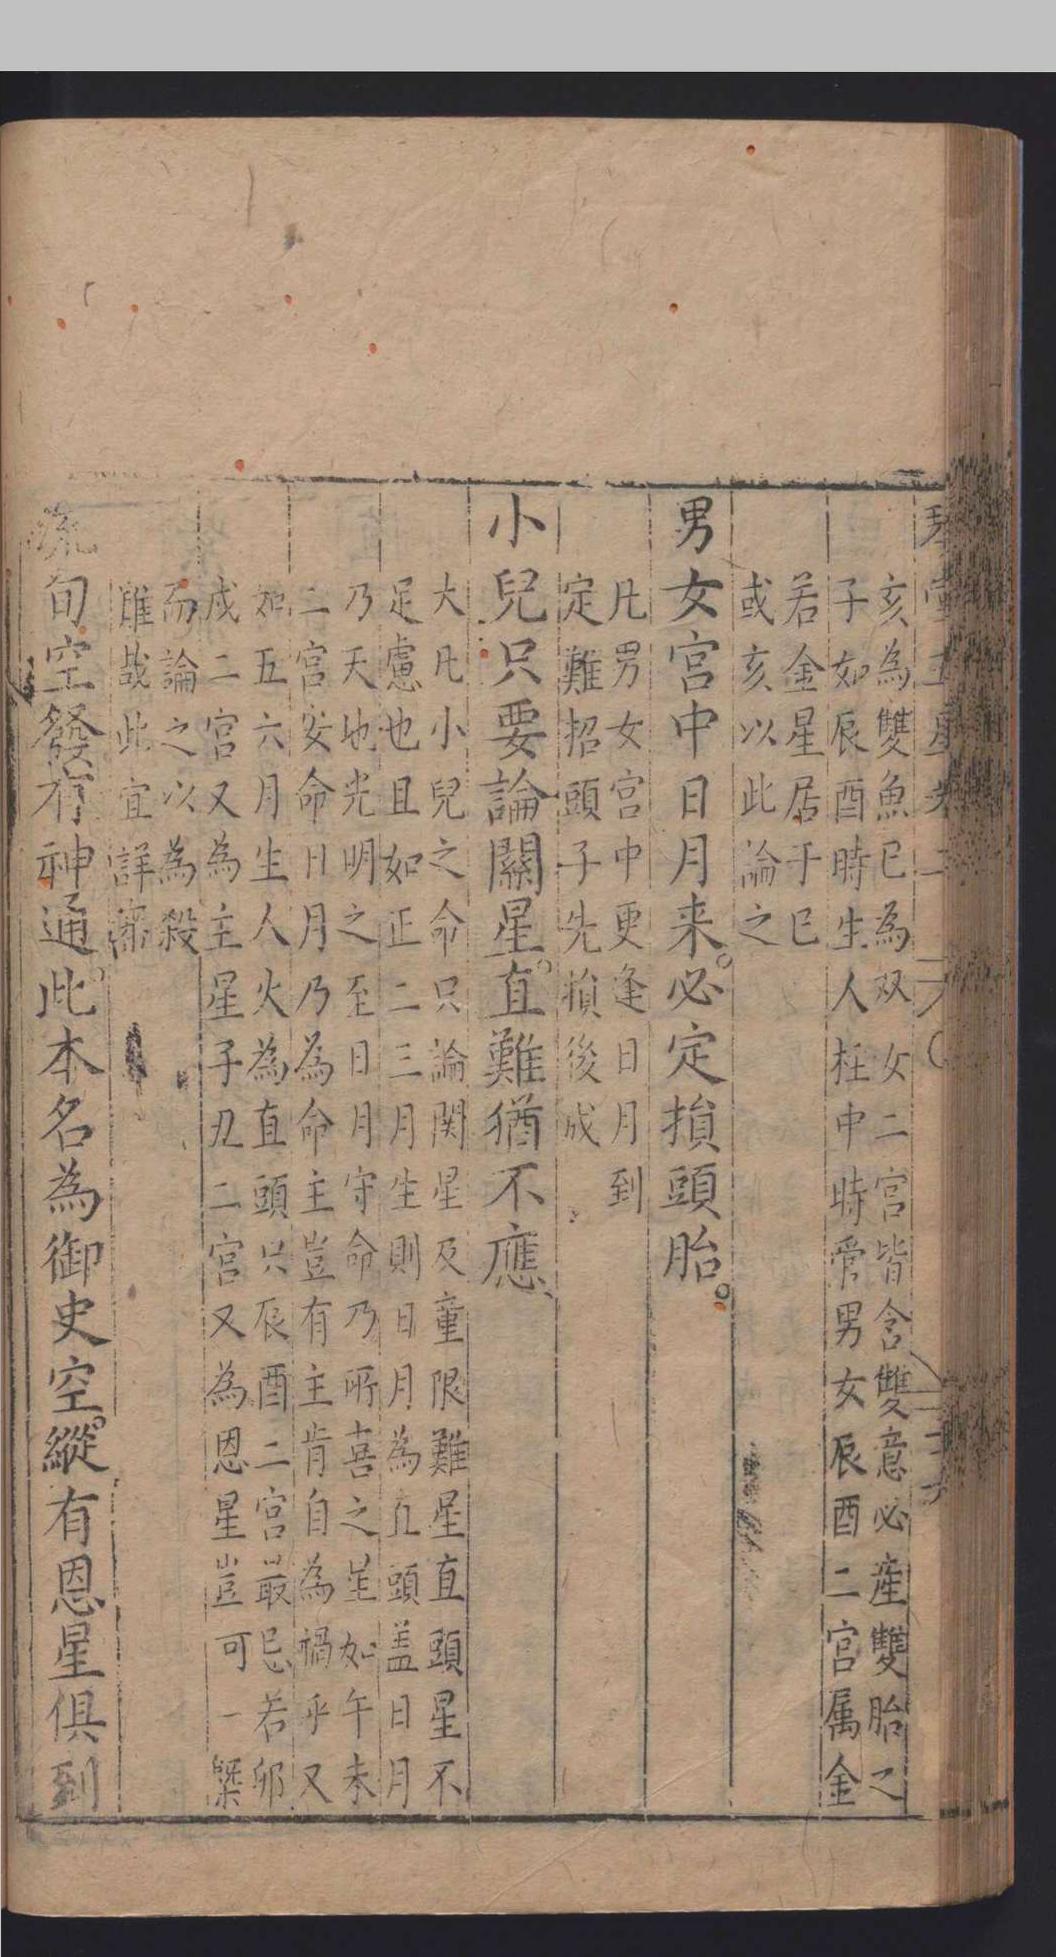 亥為雙魚巳為双女二宮皆含雙意必産雙胎之
子如辰酉時生人枉中時常男女辰酉二宮属金
若金星居于巳
或亥以此論之
男女宮中日月来必定損頭胎
凡男女宮中更逢日月到
定難招頭子先損後成
小兒只要論關星直難猶不應
大凡小兒之命只論関星及童限難星直頭星不
足慮也且如正二三月生則日月為直頭盖日月
乃天地光明之至日月守命乃所喜之星如午未
二宮安命日月乃為命主豈有主肯自為禍乎又
如五六月生人火為直頭只辰酉二宮最忌若卯
戌二宮又為主星子丑二宮又為恩星豈可一槩
而論之以為殺
雖哉此宜詳
旬空發有神通此本名為御史空縱有恩星俱到